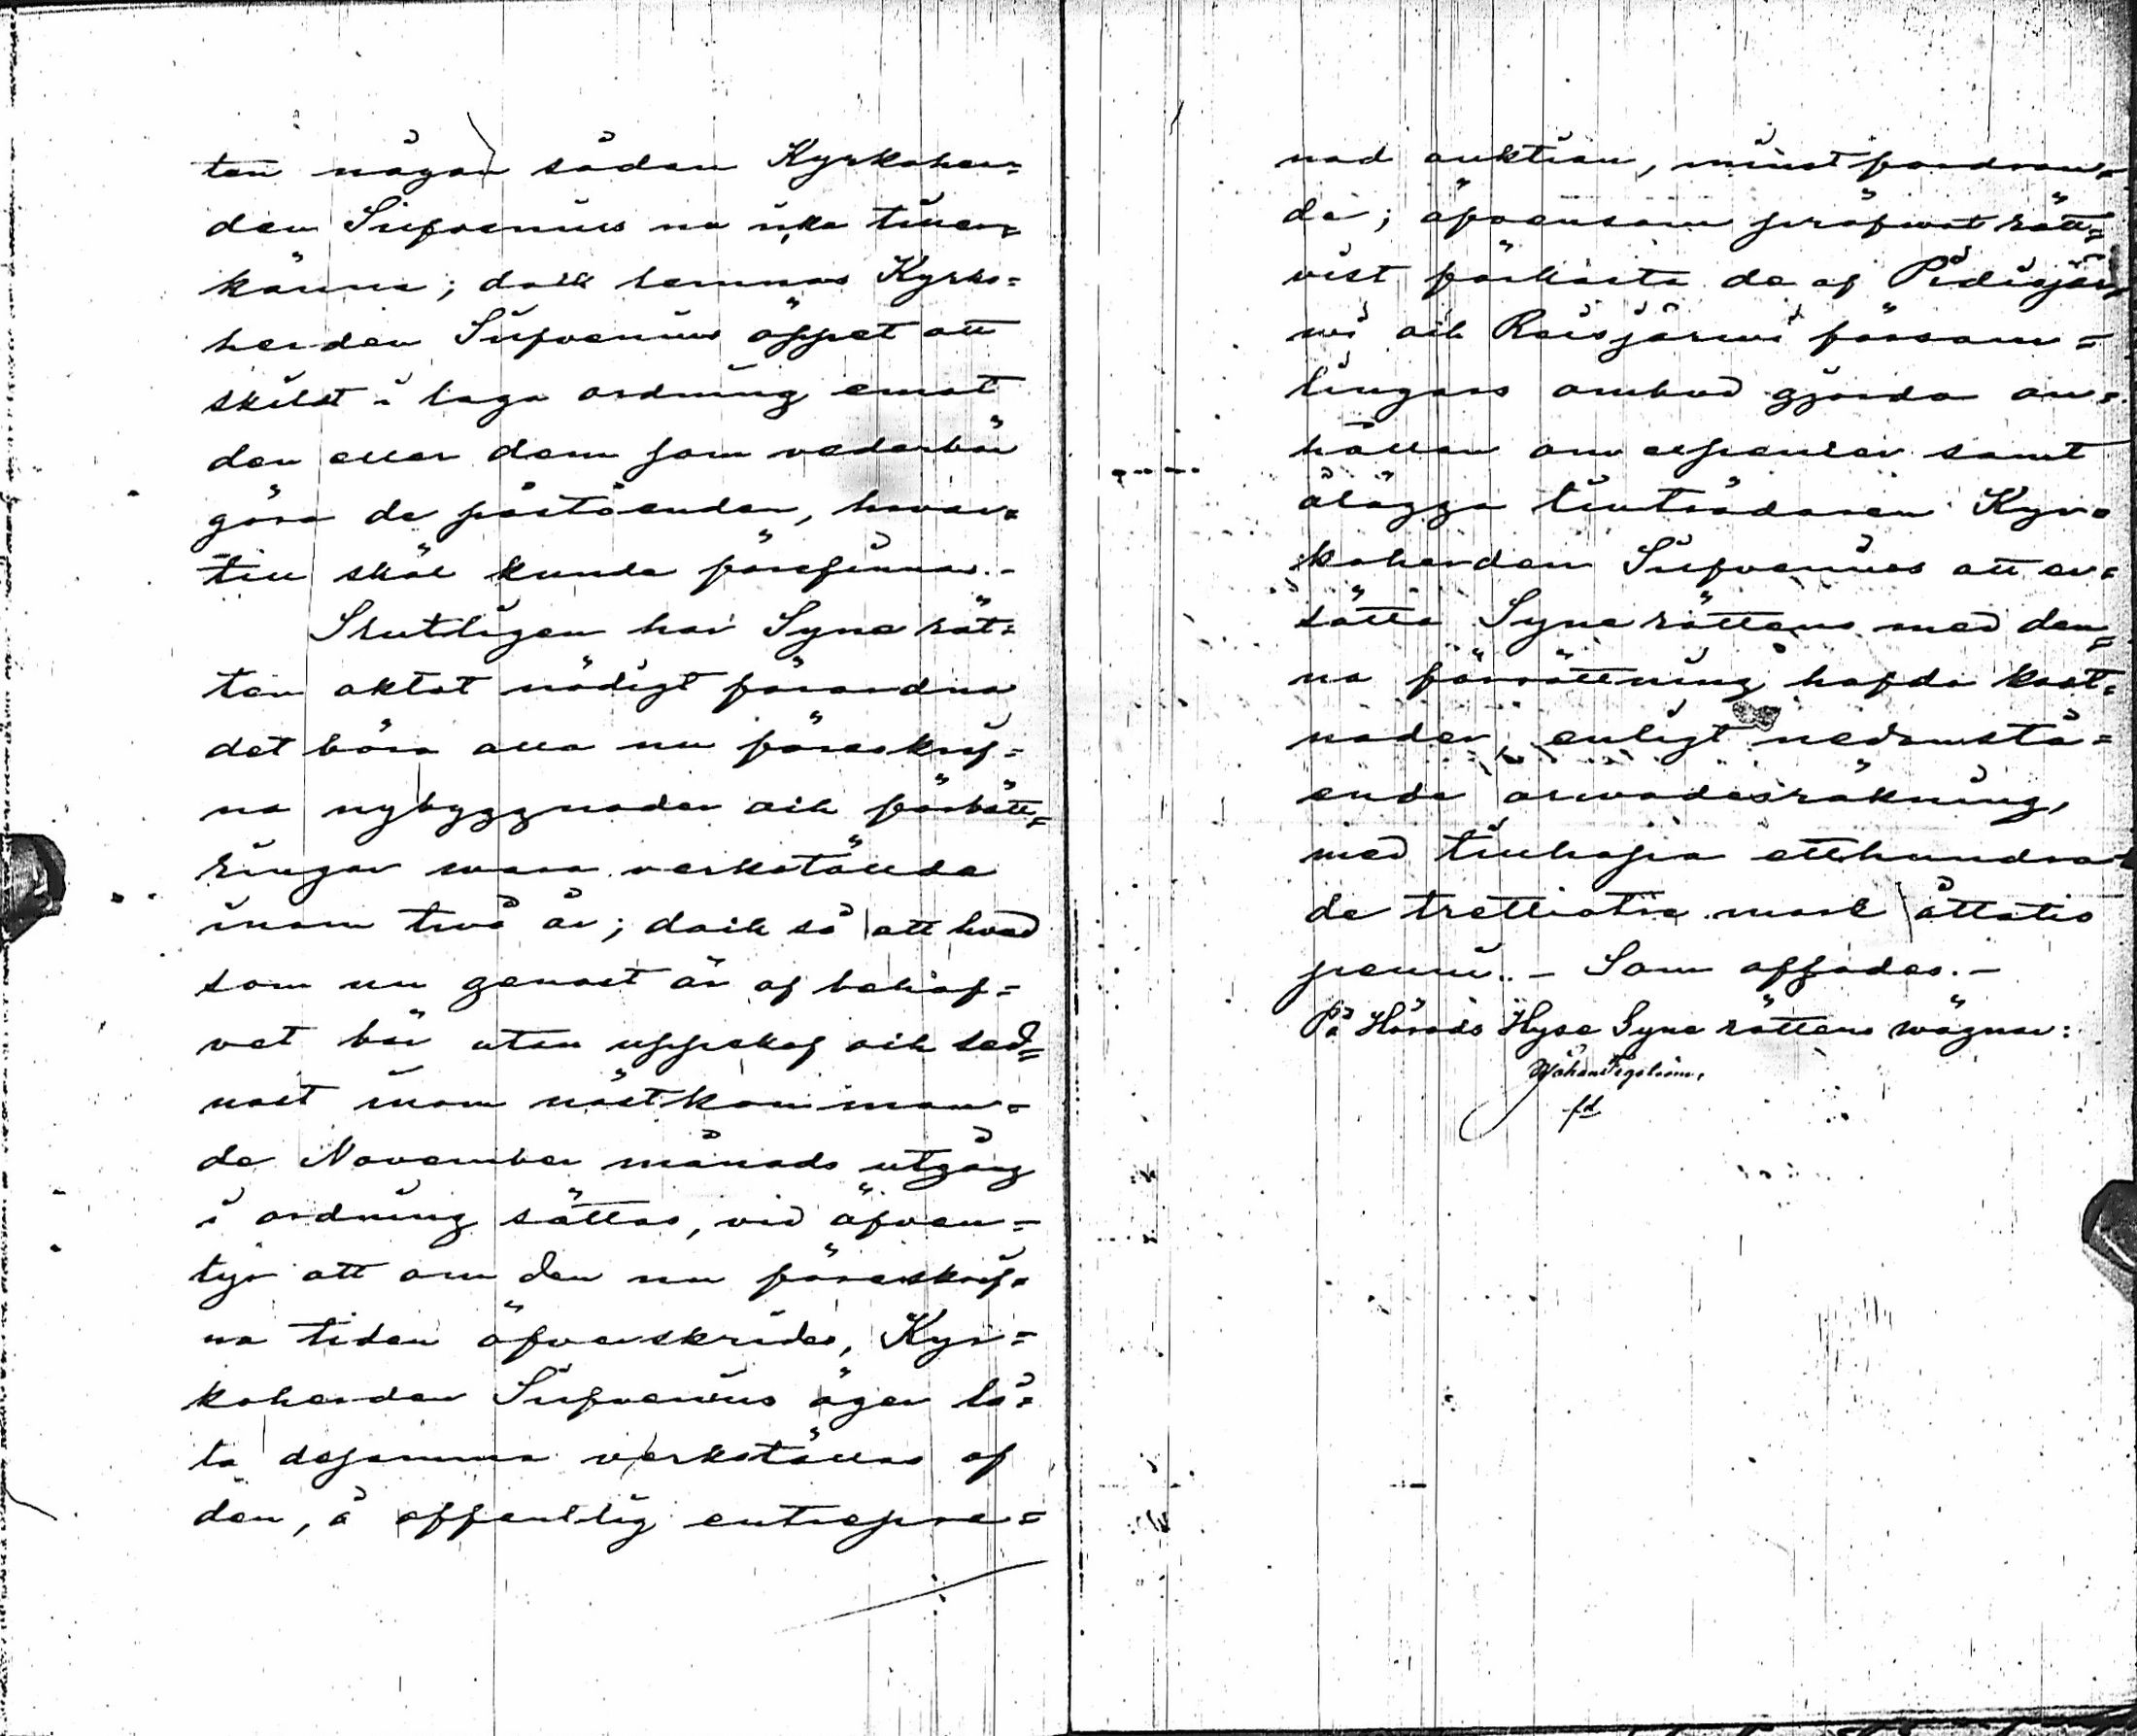 ten någon sådan Kyrkoher=
den Sirfvenius nu icke tiller=
känna; dock lemnas Kyrko=
herden Sirfvenius öppet att
skildt i laga ordning emot
den eller dem som vederbör
göra de påståenden, hvar=
till skäl kunde förefinnas.-
Slutligen har Syne rät=
ten aktat nödigt förordna
det böra alla nu föreskrif=
na nybyggnader och förbätt=
ringar wara verkstälda
inom två år; dock så att hvad
som nu genast är af behöf=
vet bör utan uppskof och sed=
nast inom nästkomman=
de November månads utgång
i ordning sättas, vid äfven=
tyr att om den nu föreskrif=
na tiden öfverskrides, Kyr=
koherden Sirfvenius äger lå=
ta desamma verkställas af
den, å offentlig entrepre=
nad auktion, minst fordran=
de; äfvensom pröfwat rätt=
vist förkasta de af Pidisjär=
wi och Reisjärwi försam=
lingars ombud gjorda an=
hållan om expenser samt
ålägga tillträdaren Kyr=
koherden Sirfvenius att er=
sätta Syne rättens med den=
na förrättning hafda kost=
nader enligt nedanstå=
ende arwodesräkning,
med tillhopa etthundra
de trettiotre mark åttatio
penni.- Som afsades.-
På Härads Hyse Syne rättens wägnar:
Johan Tegström,